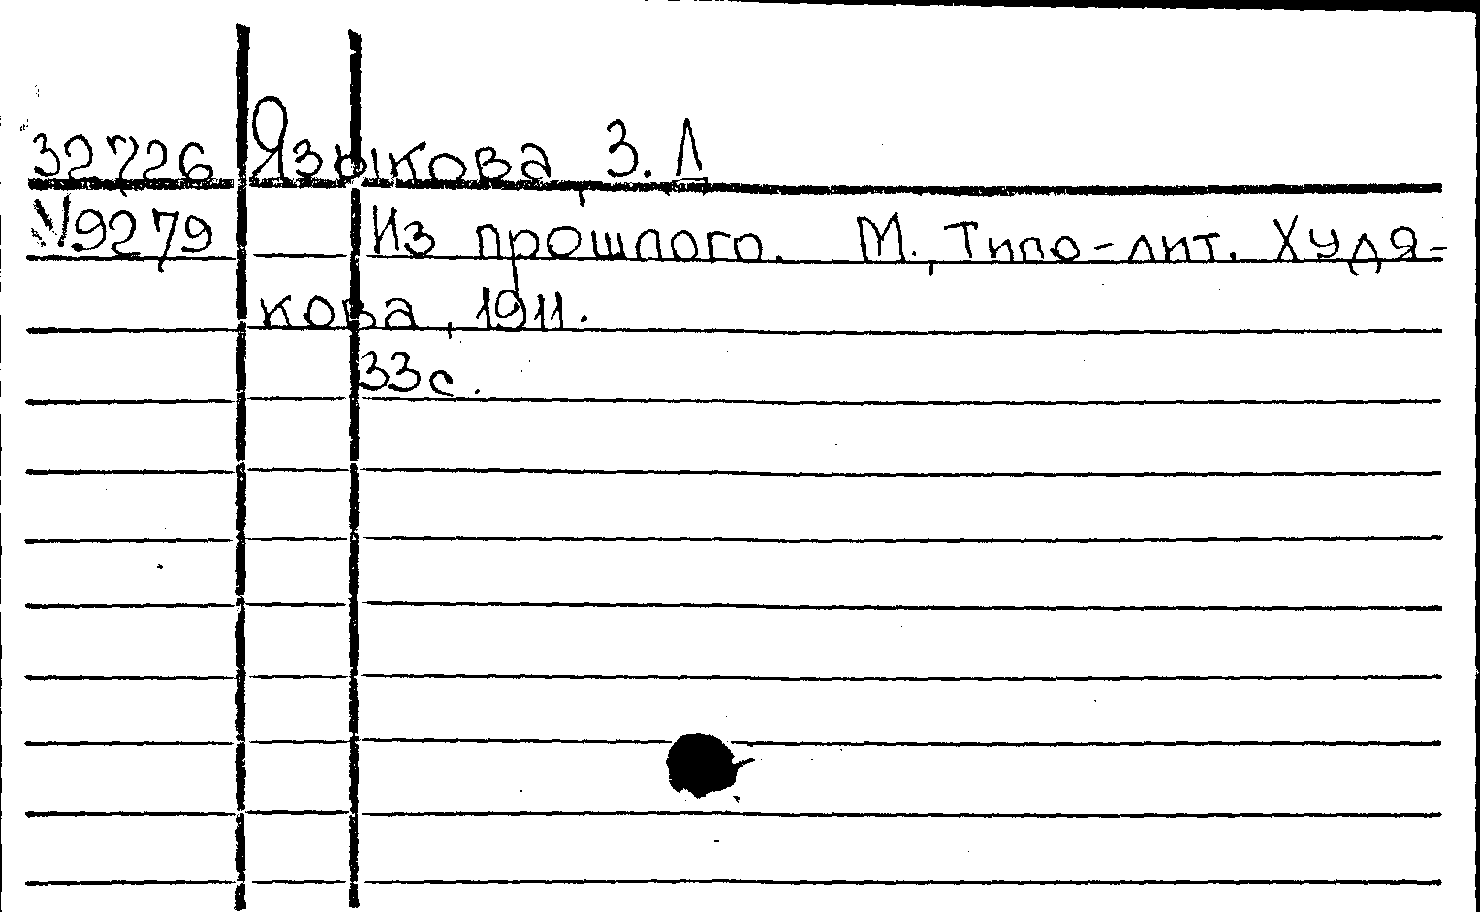 32726 Языкова, З. Л
№9279 Из прошлого. М., Типо-лит. Худя-
кова, 1911.
33с.